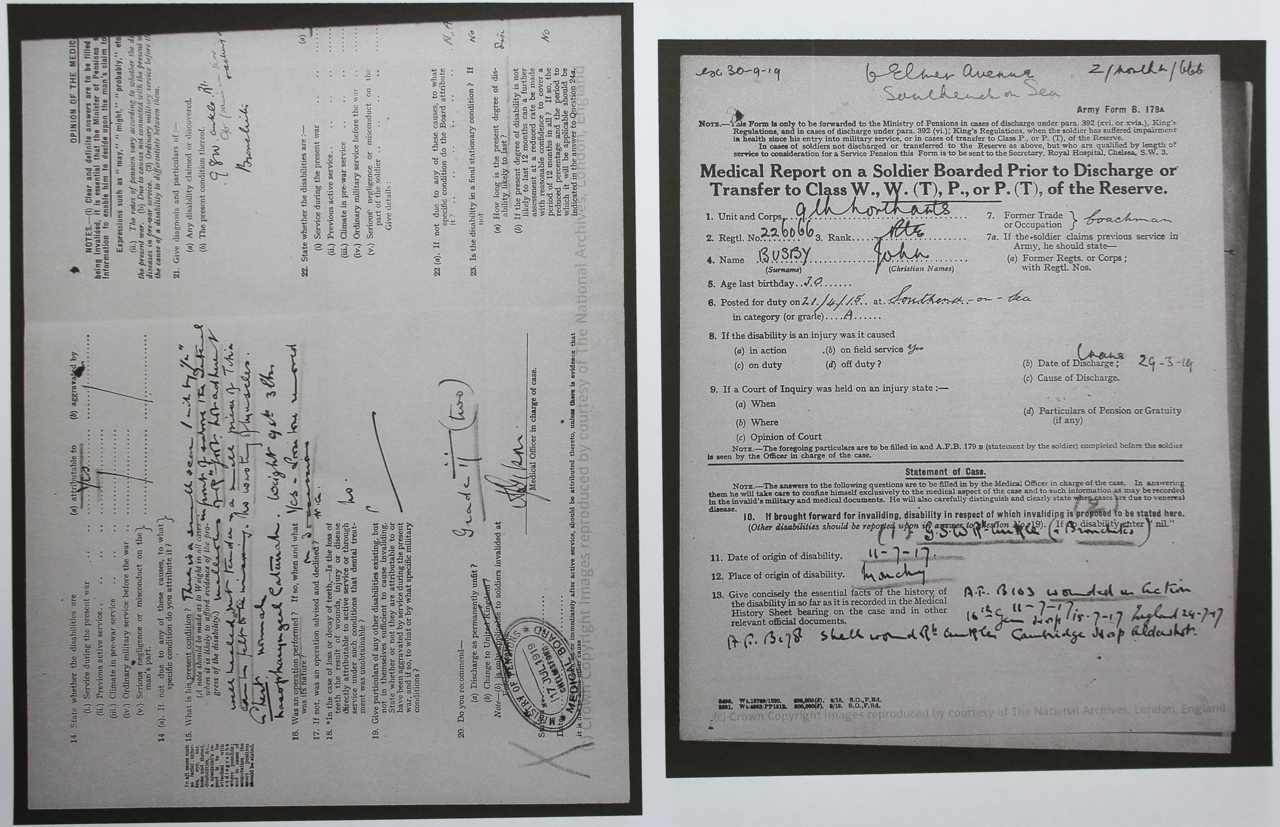 OPINION OF THE MEDIC
NOTES.—(i) Clear and definite answers are to be filled
being invalided, it is essential that the Minister of Pensions s
information to enable him to decide upon the man's claim to
Expressions such as "may," "might," "probably," etc
(ii.) The rates of pension vary according to whether the di
the present war. (b) Due to causes not connected with the present w
diseases in pre-war service. (3) Ordinary military service before th
the cause of a disability to differentiate between them.
21. Give diagnosis and particulars of :—
(a) Any disability claimed or discovered.
(b) The present condition thereof.
g s w ankle Rt.
Bronchitis
22. State whether the disabilities are :—
(i) Service during the present war
(ii.) Previous active service..
(iii.) Climate in pre-war service
(iv.) Ordinary military service before the war
(v.) Serious negligence or misconduct on the
part of the soldier
Give details :
22 (a). If not due to any of these causes, to what
specific condition do the Board attribute
it ?
23. Is the disability in a final stationary condition ? If No
not
(a) How long is the present degree of dis-
ability likely to last ?
(b) If the present degree of disability is not
likely to last 12 months can a further
assessment at a reduced rate be made
with reasonable confidence to cover a
period of 12 months in all ? If so, the
reduced percentage and the period to
which it will be applicable should be
indicated in the answer to Question 24a.
No
14. State whether the disabilities are (a) attributable to (b) aggravated by
(i.) Service during the present war Yes
(ii.) Previous active service
(iii.) Climate in pre-war service
(iv.) Ordinary military service before the war
(v.) Serious negligence or misconduct on the
man's part.
14 (a). If not due to any of these causes, to what
specific condition do you attribute it ?
15. What is his present condition ? There is a small scar 1 inch by ½"
(A note should be made as to Weight in all cases
when it is likely to afford evidence of the pro-
gress of the disability.)
in front of & above the External
malleolus Rt foot. Not adherent
well healed not tender & a small piece of Tibia
can be felt to be missing. No wasting of muscles.
Chest normal
nasopharyngeal Catarrh Weight 9 st 3 lbs
16. Was an operation performed ? If so, when and what
was its nature ? Yes - Iron Ions removed
17. If not, was an operation advised and declined ? n.a.
18. *In the case of loss or decay of teeth,—Is the loss of
teeth the result of wounds, injury or disease
directly attributable to active service or through
service under such conditions that dental treat-
ment was unobtainable ? No.
19. Give particulars of any other disabilities existing, but
not in themselves sufficient to cause invaliding.
State whether or not they are attributable to or
have been aggravated by service during the present
war, and if so, to what or by what specific military
conditions ?
20. Do you recommend—
(a) Discharge as permanently unfit ?
(b) Change to United Kingdom? Grade II (two)
Note—(b) is only applicable to soldiers invalided at
Medical Officer in charge of case.
MINISTRY OF PENSIONS
17 JUL 1919
CHELMSFORD
MEDICAL BOARD
immediately after active service, should be attributed thereto, unless there is evidence that
(c) Crown Copyright Images reproduced by courtesy of The National Archives, London, England
exc 30-9-19
6 Elmer Avenue
Southend on Sea
Army Form B. 179A
NOTE.—This Form is only to be forwarded to the Ministry of Pensions in cases of discharge under para. 392 (xvi. or xvia.), King's
Regulations, and in cases of discharge under para. 392 (vi.); King's Regulations, when the soldier has suffered impairment
in health since his entry into military service, or in cases of transfer to Class P., or P. (T), of the Reserve.
In cases of soldiers not discharged or transferred to the Reserve as above, but who are qualified by length of
service to consideration for a Service Pension this Form is to be sent to the Secretary, Royal Hospital, Chelsea, S.W. 3.
Medical Report on a Soldier Boarded Prior to Discharge or
Transfer to Class W., W. (T), P., or P. (T), of the Reserve.
1. Unit and Corps. 9th Northants
2. Regtl. No. 226066 3. Rank Pte
4. Name BUSBY John
(Surname) (Christian Names)
5. Age last birthday 30
6. Posted for duty on 21/4/15 at Southend-on-Sea
in category (or grade) A
7. Former Trade
or Occupation } Coachman
7a. If the soldier claims previous service in
Army, he should state—
(a) Former Regts. or Corps ;
with Regtl. Nos.
8. If the disability is an injury was it caused
(a) in action (b) on field service Yes
(c) on duty (d) off duty ?
(b) Date of Discharge ; 29-3-19
(c) Cause of Discharge.
9. If a Court of Inquiry was held on an injury state :—
(a) When
(b) Where
(c) Opinion of Court
(d) Particulars of Pension or Gratuity
(if any)
NOTE.—The foregoing particulars are to be filled in and A.F.B. 179 B (statement by the soldier) completed before the soldier
is seen by the Officer in charge of the case.
Statement of Case.
NOTE.—The answers to the following questions are to be filled in by the Medical Officer in charge of the case. In answering
them he will take care to confine himself exclusively to the medical aspect of the case and to such information as may be recorded
in the invalid's military and medical documents. He will also carefully distinguish and clearly state when cases are due to venereal
disease.
10. If brought forward for invaliding, disability in respect of which invaliding is proposed to be stated here.
(Other disabilities should be reported upon in answer to question No. 19). If no disability enter "nil."
(1) G.S.W Rt. ankle (2) Bronchitis
11. Date of origin of disability. 11-7-17.
12. Place of origin of disability. Monchy
13. Give concisely the essential facts of the history of
the disability in so far as it is recorded in the Medical
History Sheet bearing on the case and in other
relevant official documents.
A.F. B103 wounded in action
11-7-17 England 24-7-17
A.F. B178 Shell wound Rt ankle Cambridge Hosp Aldershot.
(c) Crown Copyright Images reproduced by courtesy of The National Archives, London, England